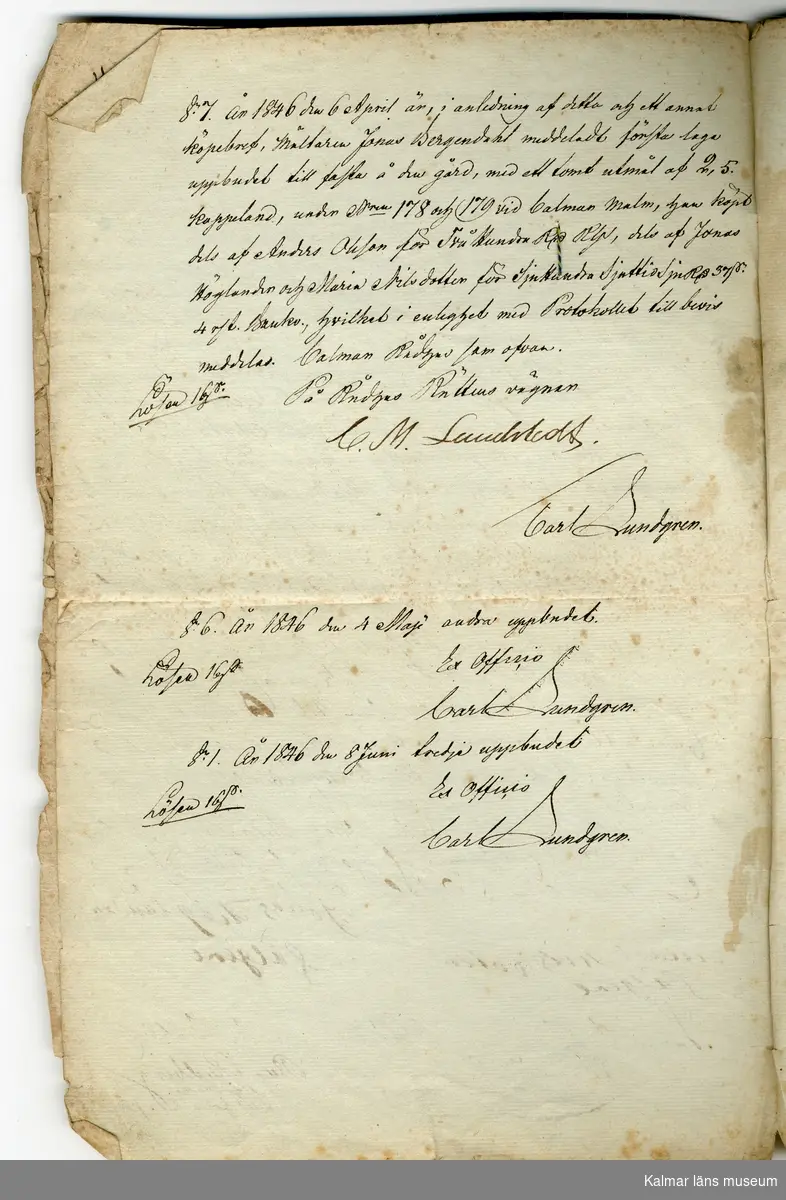 § 7. År 1846 den 6 April är, i anledning af detta och ett annat
köpebref, Mältaren Jonas Bergendahl meddeladt första laga
uppbudet till fasta å den gård, med ett tomt utmål af 2,5.
kappeland, under N:ris 178 och 179 vid Calmar Malm, han köpt
dels af Anders Olsson för Två Hundra Rd Rgs, dels af Jonas
Höglander och Maria Nilsdotter för Sju Hundra Sjuttio Sju Rd 37 s.
4 rst. Banko., hvilket i enlighet med Protokollet till bevis
meddelas. Calmar Rådhus som ofvan.
Lösen 16 s.
På Rådhus Rättens vägnar
C. M. Lundstedt.
Carl Lundgren.
§ 6. År 1846 den 4 Maji andra uppbudet.
Lösen 16 s.
Ex Officio
Carl Lundgren.
§ 1. År 1846 den 8 Juni tredje uppbudet
Lösen 16 s.
Ex Officio
Carl Lundgren.
Kalmar läns museum